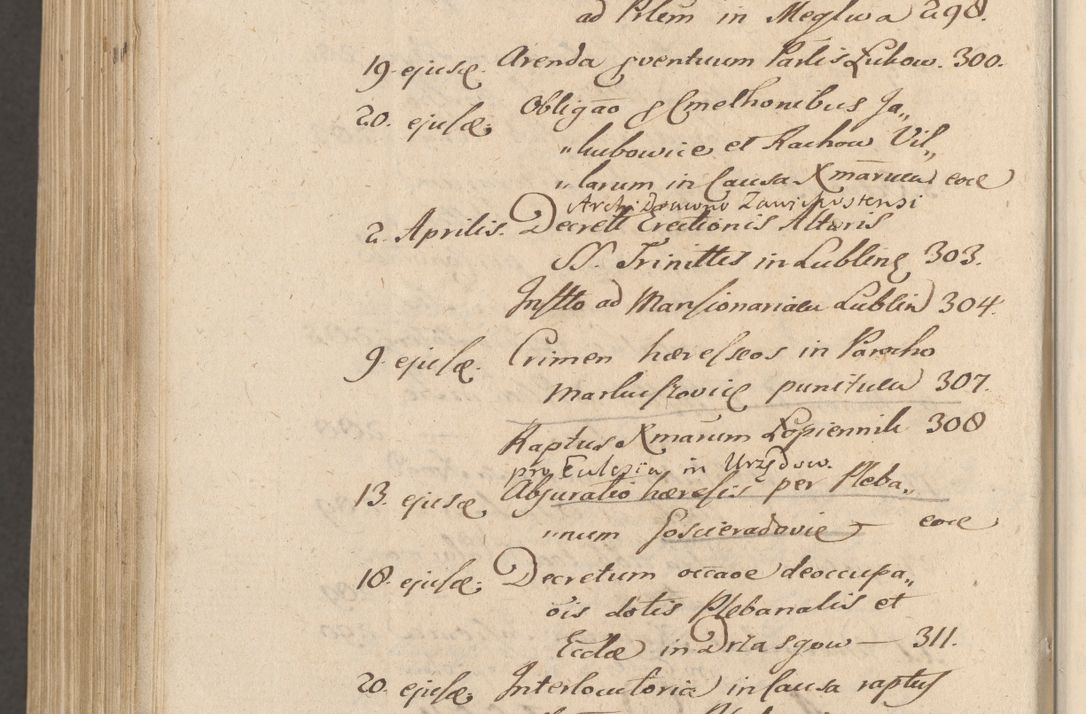 ad Prlem in Meglwa 298.
19. ejusæ. Arenda pventuum Partis Lukow. 300.
20. ejusæ. Obligāo p Cmethonibus Ja„
„lubowice et Rachow Vil„
„larum in Causa Xmāruu eoe
Archidiacono Zawichostensi
2. Aprilis. Decrett Erectionis Altaris
SS. Trinittis in Lubline 303.
Instto ad Mansionariatu Lublin 304.
9. ejusæ. Crimen hæreseos in Parocho
Markuszovie punitum 307.
Raptus Xmarum Lopiennik 308
pro Eulesia in Urzędow.
13. ejusæ Abjuratio hæresis per Pleba„
„num Gościeradovie eoe
18. ejusæ. Decretum occāoe deoccupa„
ōis dotis Plebanalis et
Ecclæ in Drzasgow — 311.
20. ejusæ. Interloutoria in Causa raptus